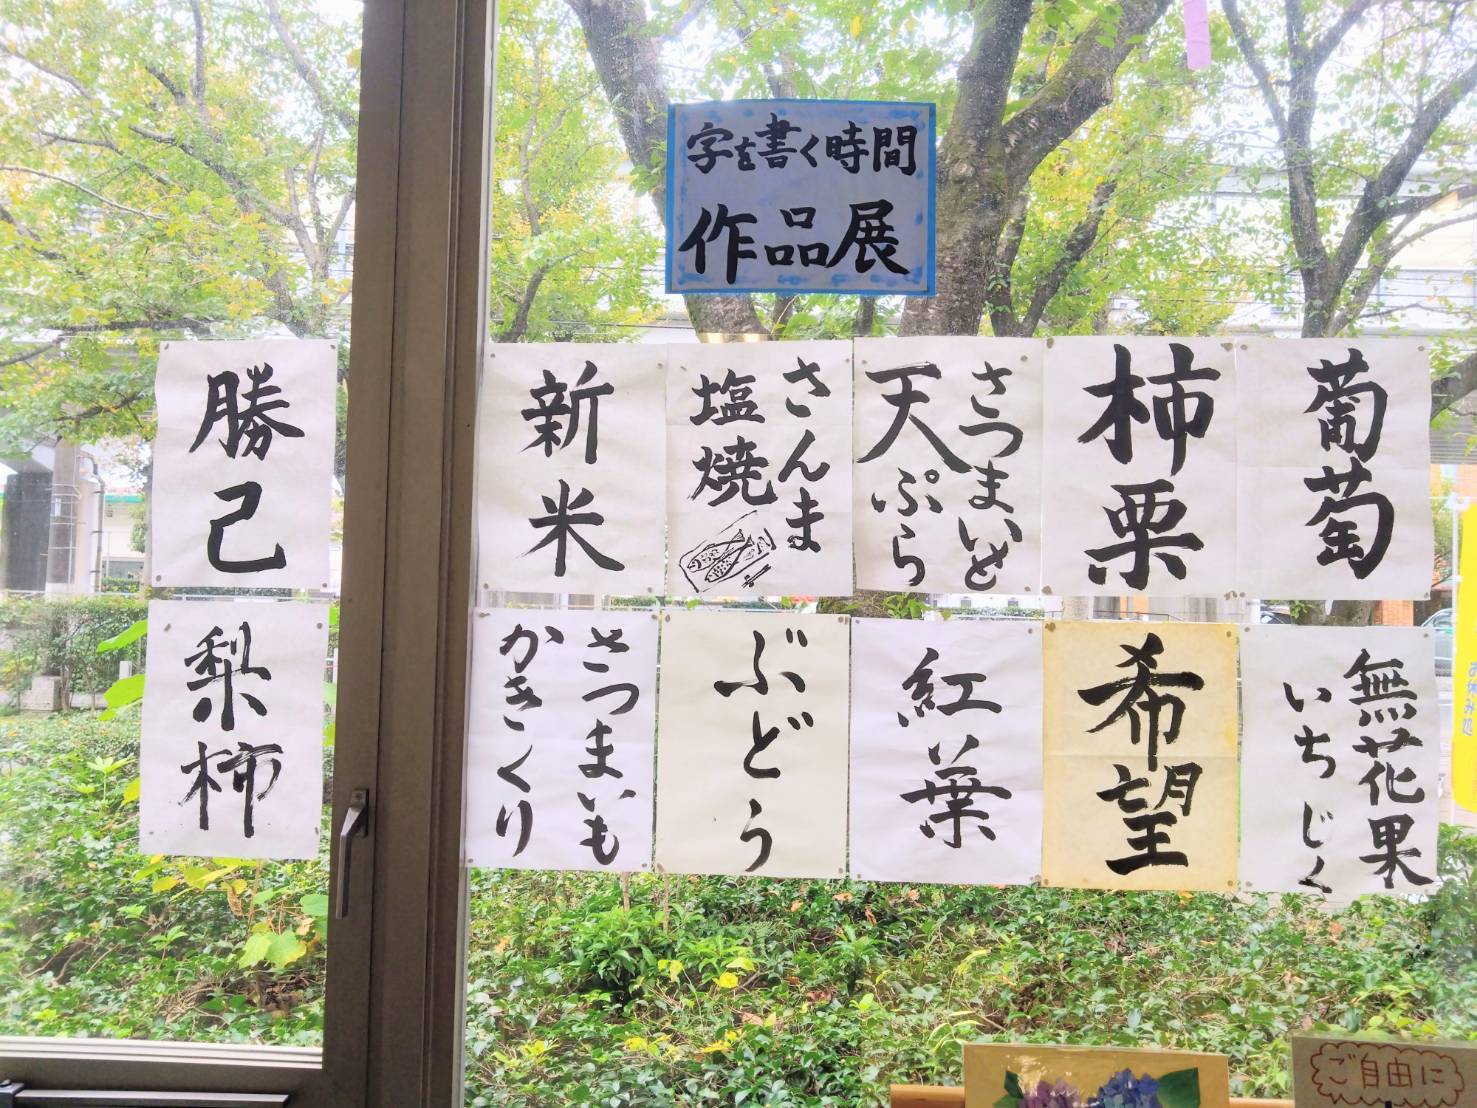 字を書く時間
作品展
葡萄
柿栗
さつまいも
天ぷら
さんま
塩焼
新米
勝己
無花果
いちじく
希望
紅葉
ぶどう
さつまいも
かきくり
梨柿
お休み処
ご自由に